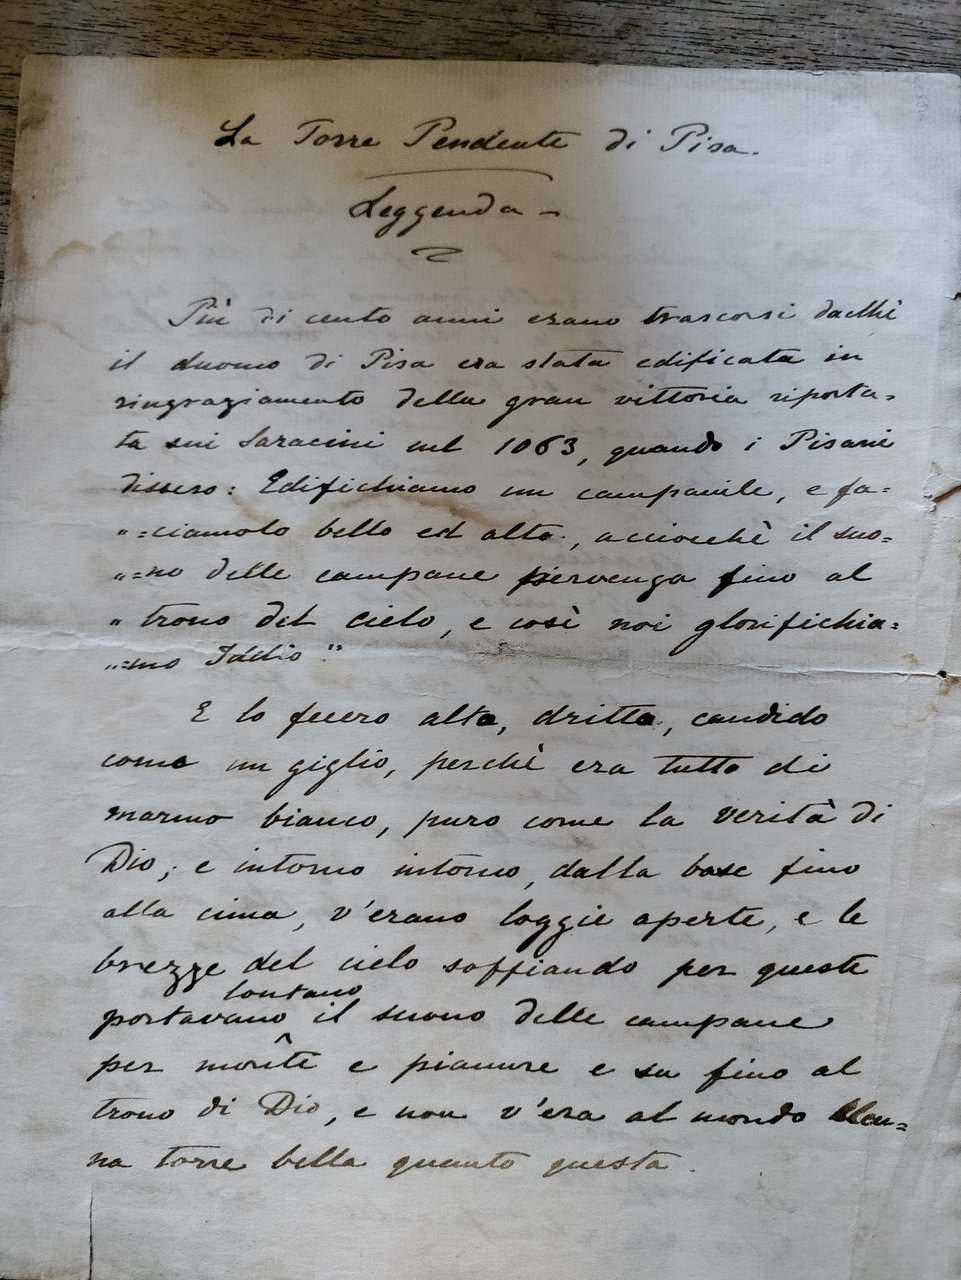 La Torre Pendente di Pisa.
Leggenda -
Più di cento anni erano trascorsi dacchè
il duomo di Pisa era stata edificata in
ringraziamento della gran vittoria riporta=
ta sui Saracini nel 1063, quando i Pisani
dissero: Edifichiamo un campanile, e fa=
"=ciamolo bello ed alto, acciocchè il suo=
"=no delle campane pervenga fino al
" trono del cielo, e così noi glorifichia=
"=mo Iddio"
E lo fecero alto, dritto, candido
come un giglio, perchè era tutto di
marmo bianco, puro come la verità di
Dio; e intorno intorno, dalla base fino
alla cima, v'erano loggie aperte, e le
brezze del cielo soffiando per queste
lontano
portavano il suono delle campane
per monti e pianure e su fino al
trono di Dio, e non v'era al mondo alcu=
na torre bella quanto questa.